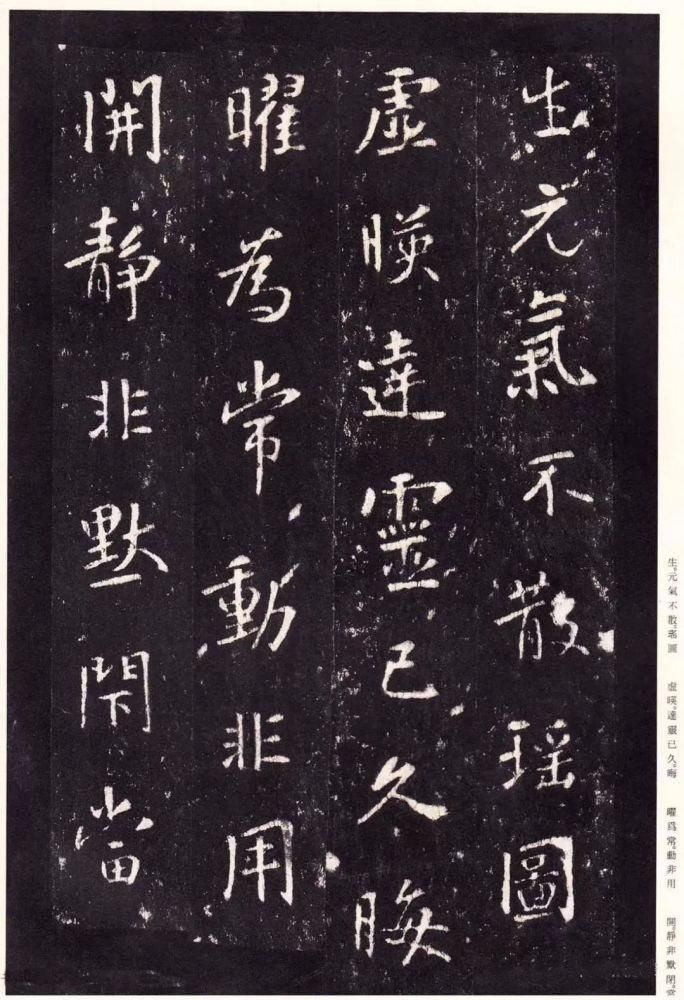 生元氣不散瑶圖
虛暎達靈已久晦
曜為常動非用
開靜非默閇當
生。元氣不散。瑤圖
虛暎。達靈已久。晦
曜爲常。動非用
開。靜非默閉。當